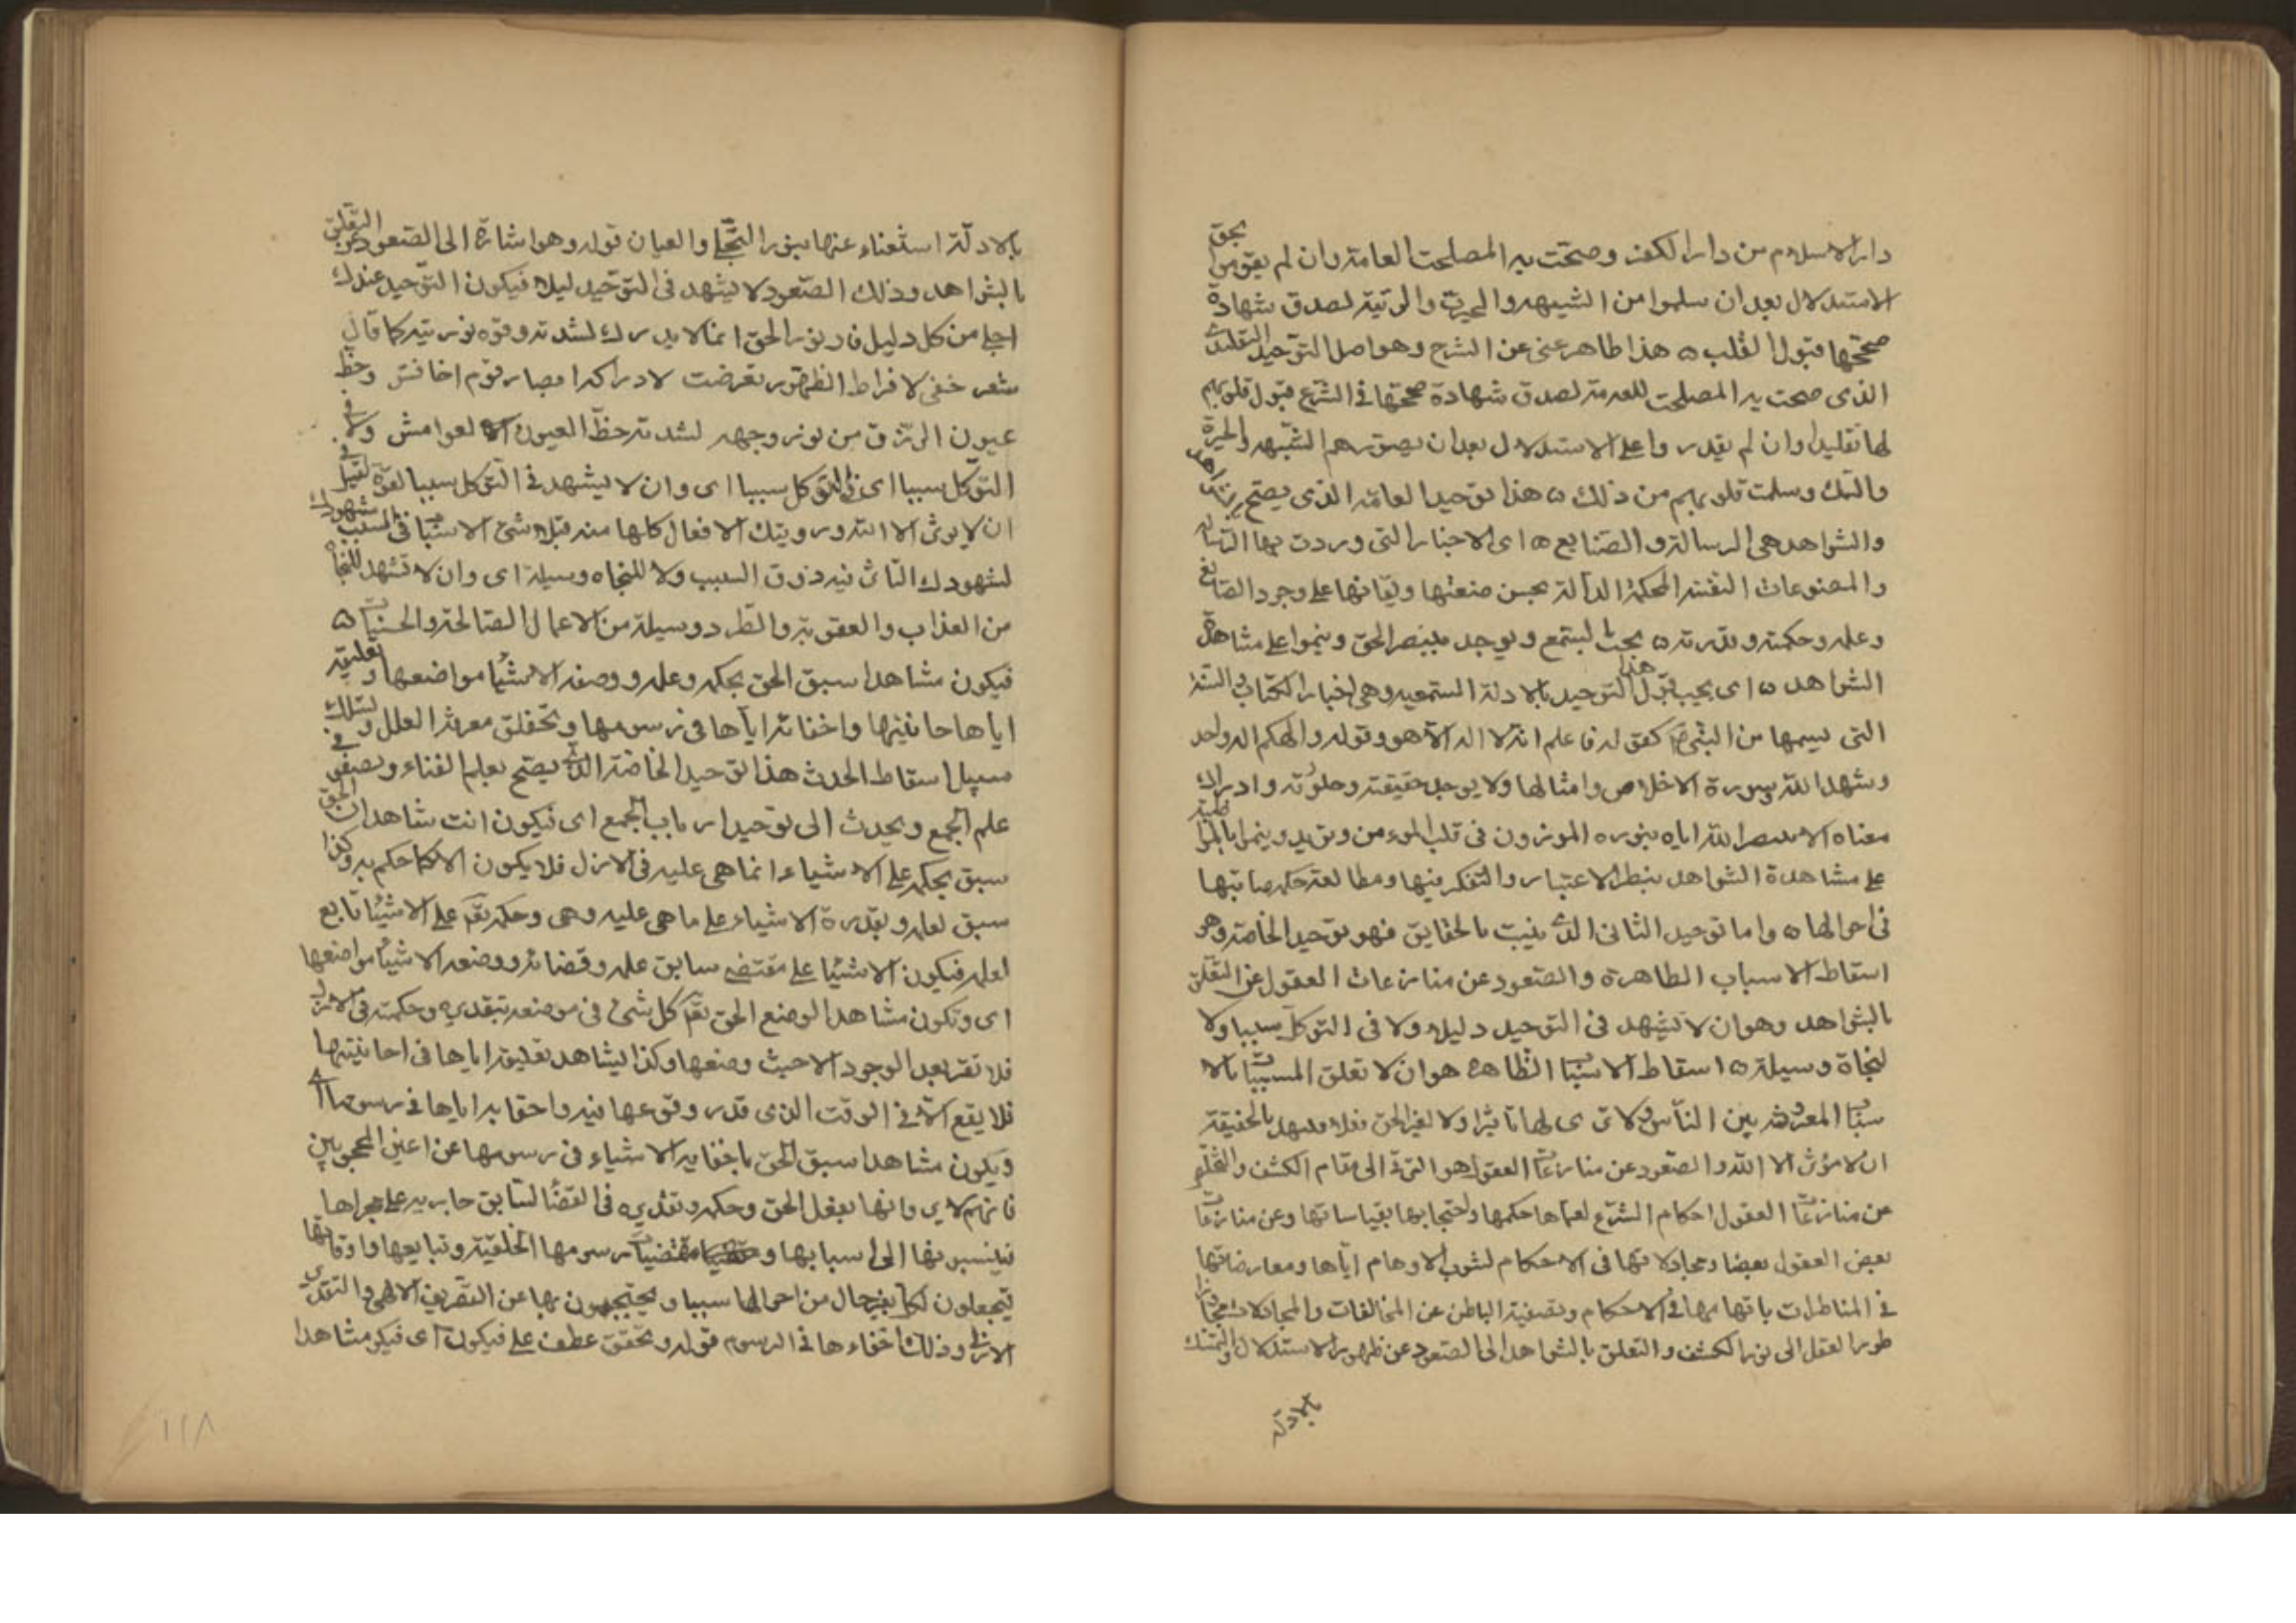 دار الاسلام من دار الكفر وصحّت به المصلحت العامة وان لم يقوموا بحق
الاستدلال بعد ان سلموا من الشبهه والحيرة والريبة لصدق شهادة
صححها قبول القلب ه هذا ظاهر غنى عن الشرح وهو اصل التوحيد التقليدى
الذى صحت به المصلحت للعامة لصدق شهادة صححها فى الشرع قبول قلوبهم
لها تقليدا وان لم يقدروا على الاستدلال بعد ان يصورهم الشّبهه والحيرة
والشك وسلمت قلوبهم من ذلك ه هذا توحيد العامّة الذى يصح
والشواهد هى الرسالة والصنايع ه اى الاخبار التى وردت بها الرسالة
والمصنوعات المتقنة المحكمة الدالة بحسن صنعتها واتقانها على وجود الصانع
وعلمه وحكمته وقدرته ه يجب بالسمع ويوجد بتبصير الحق وينموا على مشاهدة
الشواهد ه اى يجب قبول هذا التوحيد بالادلة السمعيه وهى اخبار الكتاب والسنة
التى يسمعها من النبى كقوله فاعلم انه لا اله الا هو وقوله والهكم اله واحد
وشهد الله وسورة الاخلاص وامثالها ولا يوجد حقيقته وحلاوته وادراك
معناه الا بتبصير الله اياه بنوره الموزون فى قلب المؤمن ويزيد وينموا بالمواظبة
على مشاهدة الشواهد بنظر الاعتبار والتفكر فيها ومطالعة حكم صانعها
فى احوالها ه واما توحيد الثانى الذى يثبت بالحقايق فهو توحيد الخاصة وهو
اسقاط الاسباب الظاهرة والصعود عن منازعات العقول عن التعلق
بالشواهد وهو ان لا تشهد فى التوحيد دليلا ولا فى التوكل سببا ولا
لنجاة وسيلة ه اسقاط الاسباب الظاهرة هو ان لا تعلق المسببات بالا
سباب المعروفة بين الناس ولا ترى لها تاثيرا ولا لغير الحق فعلا وتشهد بالحقيقة
ان لا مؤثر الا الله والصعود عن منازعات العقول هو الترقى الى مقام الكشف والتخلص
من منازعات العقول احكام الشرع لعماها حكمها واحتجابها بقياساتها وعن منازعات
بعض العقول بعضا ومجادلاتها فى الاحكام لشوب الاوهام اياها ومعارضاتها
فى المناظرات باتهامها فى الاحكام وتصفية الباطن عن المخالفات والمجادلات مجاوزا
طور العقل الى نور الكشف والتعلق بالشواهد الى الصعود عن ظهور الاستدلال والتمسك
بالادلة
بالادلّة استغناء عنها بنور التجّلى والعيان قوله وهو اشارة الى الصعود عن التعلق
بالشواهد وذلك الصعود لا يشهد فى التوحيد دليلا فيكون التوحيد عندك
اجلى من كل دليل فان نور الحق انما لا يدرك لشدته وقوه نوريته كما قال
شعر خفى لافراط الظهور تعرضت لادراكه ابصار قوم اخافش وحظ
عيون الزرق من نور وجهه لشدته حظّ العيون العوامش ولا فى
التوكّل سببا اى فى التوكل سببا اى وان لا يشهد فى التوكل سببا لقوّة يقينك فى
ان لا يؤثر الا الله ورويتك الافعال كلها منه قبلا شئ الاسباب فى المسبب شهودك
لشهودك التاثير فيه ذوق السبب ولا للنجاه وسيلة اى وان لا تشهد للنجاة
من العذاب والعقوبة والطرد وسيلة من الاعمال الصالحة والحسنات ه
فيكون مشاهدا سبق الحق بحكمه وعلمه ووصفه الاشيا مواضعها وتعليقه
اياها حايينها واخفائه اياها فى رسومها وتحقق معرفة العلل وتسلك
سبيل اسقاط الحدث هذا توحيد الخاصّة الذى يصح بعلم الفناء ويصفو فى
علم الجمع ويجذب الى توحيد ارباب الجمع اى فيكون انت شاهدا ان الحق
سبق بحكمه على الاشياء انما هى عليه فى الازل فلا يكون الا كما حكم به وكذا
سبق لعلمه وبقدرة الاشياء على ما هى عليه وهى وحكمه تع على الاشيا تابع
لعلمه فيكون الاشيا على مقتضى سابق علمه وقضائه ووضعه الاشيا مواضعها
اى وتكون مشاهدا لوضع الحق تع كل شئ فى موضعه بتقديره وحكمته فى الازل
فلا تقر بعد الوجود الا حيث وضعها وكذا يشاهد تعليقه اياها فى احايينها
فلا يقع الا فى الوقت الذى قدر وقوعها فيه واخفائه اياها فى رسومها اى
ويكون مشاهدا سبق الحق باخفايه الاشياء فى رسومها عن اعين المحجوبين
فانهم لا يروانها بفعل الحق وحكمه وتقديره فى القضا السابق جاريه على مجراها
فينسبونها الى اسبابها ومقتضيات رسومها الخلقيّة وتبايعها واوقاتها
فيجعلون لكل تغير حال من احوالها سببا ويحتجبون بها عن التصريف الالهى والتقدير
الازلى وذلك اخفاءها فى الرسوم قوله وتحقق عطف على فيكون اى فيكون مشاهدا
١١٨